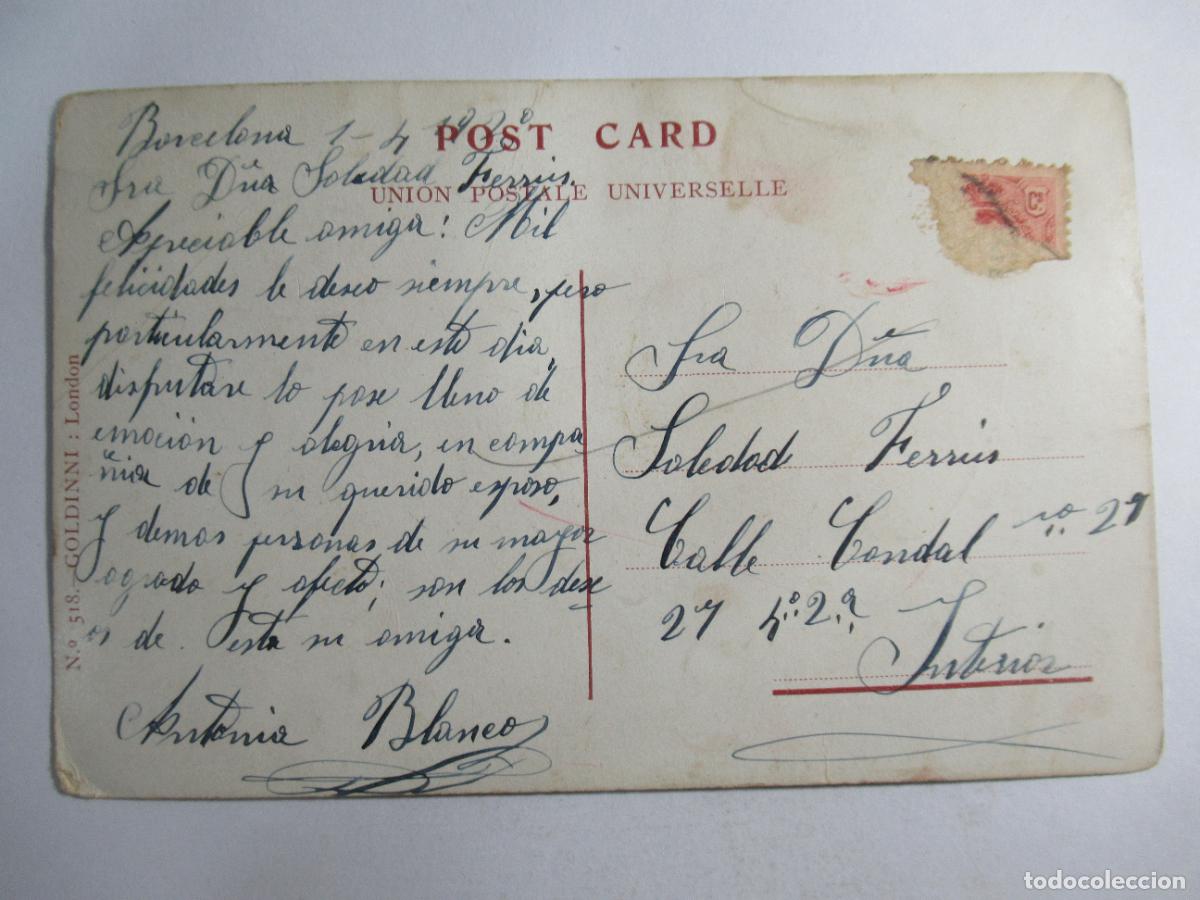 POST CARD
UNION POSTALE UNIVERSELLE
Barcelona 1-4
Sra Dña Soledad Ferrús
Apreciable amiga: Mil
felicidades le deseo siempre, pero
particularmente en este dia,
disfrutare lo pase lleno de
emoción y alegria, en compa
ñia de su querido esposo,
y demas personas, de su mayor
agrado y afecto; son los dese
os de esta su amiga.
Antonia Blanco
Sra Dña
Soledad Ferrús
Calle Condal no 27
27 4º 2ª
Interior
N.º 518.—GOLDINNI : London
Cs
todocoleccion